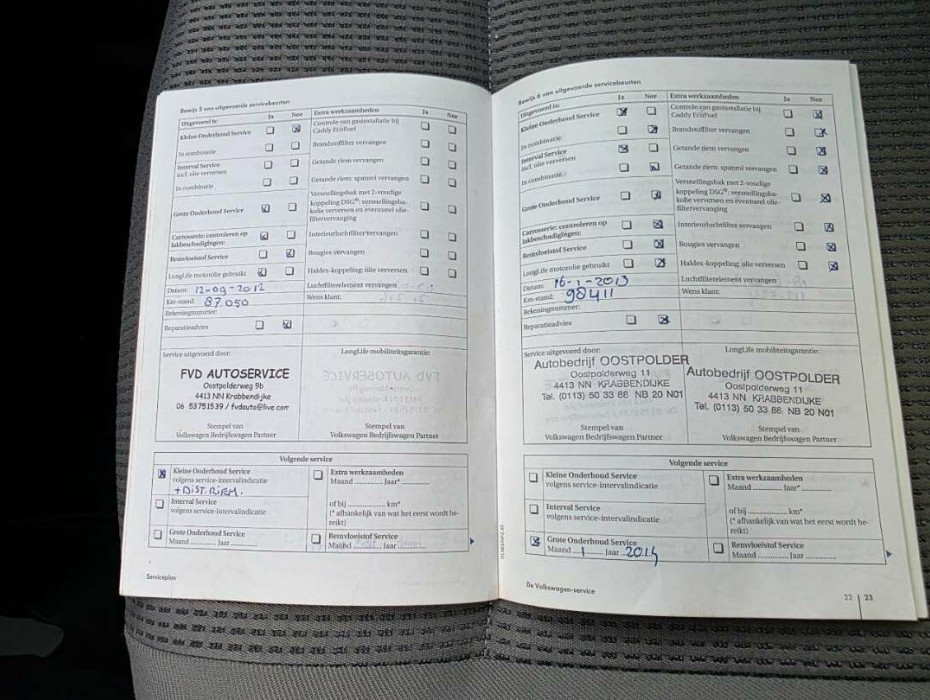 Bewijs 5 van uitgevoerde servicebeurten
Uitgevoerd is: Ja Nee Extra werkzaamheden Ja Nee
Kleine Onderhoud Service Controle van gasinstallatie bij
Caddy EcoFuel
In combinatie Brandstoffilter vervangen
Interval Service
incl. olie verversen Getande riem vervangen
In combinatie Getande riem: spanrol vervangen
Grote Onderhoud Service Versnellingsbak met 2-voudige
koppeling DSG®: versnellingsba-
kolie verversen en eventueel olie-
filtervervanging
Carrosserie: controleren op
lakbeschadigingen: Interieurluchtfilter vervangen
Remvloeistof Service Bougies vervangen
LongLife motorolie gebruikt Haldex-koppeling: olie verversen
Datum: 12-09-2012 Luchtfilterelement vervangen
Km-stand: 87.050 Wens klant:
Rekeningnummer:
Reparatieadvies
Service uitgevoerd door: LongLife mobiliteitsgarantie:
FVD AUTOSERVICE
Oostpolderweg 9b
4413 NN Krabbendijke
06 53751539 / fvdauto@live.com
Stempel van Stempel van
Volkswagen Bedrijfswagen Partner Volkswagen Bedrijfswagen Partner
Volgende service
Kleine Onderhoud Service Extra werkzaamheden
volgens service-intervalindicatie Maand ............ Jaar*............
+ DIST. RIEM.
Interval Service of bij ............ km*
volgens service-intervalindicatie (* afhankelijk van wat het eerst wordt be-
reikt)
Grote Onderhoud Service Remvloeistof Service
Maand ............ Jaar ............ Maand ............ Jaar ............
Serviceplan
Bewijs 6 van uitgevoerde servicebeurten
Uitgevoerd is: Ja Nee Extra werkzaamheden Ja Nee
Kleine Onderhoud Service Controle van gasinstallatie bij
Caddy EcoFuel
In combinatie Brandstoffilter vervangen
Interval Service
incl. olie verversen Getande riem vervangen
In combinatie Getande riem: spanrol vervangen
Grote Onderhoud Service Versnellingsbak met 2-voudige
koppeling DSG®: versnellingsba-
kolie verversen en eventueel olie-
filtervervanging
Carrosserie: controleren op
lakbeschadigingen: Interieurluchtfilter vervangen
Remvloeistof Service Bougies vervangen
LongLife motorolie gebruikt Haldex-koppeling: olie verversen
Datum: 16-1-2013 Luchtfilterelement vervangen
Km-stand: 98411 Wens klant:
Rekeningnummer:
Reparatieadvies
Service uitgevoerd door: LongLife mobiliteitsgarantie:
Autobedrijf OOSTPOLDER
Oostpolderweg 11
4413 NN KRABBENDIJKE
Tel. (0113) 50 33 86 NB 20 N01
Autobedrijf OOSTPOLDER
Oostpolderweg 11
4413 NN KRABBENDIJKE
Tel. (0113) 50 33 86 NB 20 N01
Stempel van Stempel van
Volkswagen Bedrijfswagen Partner Volkswagen Bedrijfswagen Partner
Volgende service
Kleine Onderhoud Service Extra werkzaamheden
volgens service-intervalindicatie Maand ............ Jaar*............
Interval Service of bij ............ km*
volgens service-intervalindicatie (* afhankelijk van wat het eerst wordt be-
reikt)
Grote Onderhoud Service Remvloeistof Service
Maand 1 Jaar 2014 Maand ............ Jaar ............
De Volkswagen-service
22 | 23